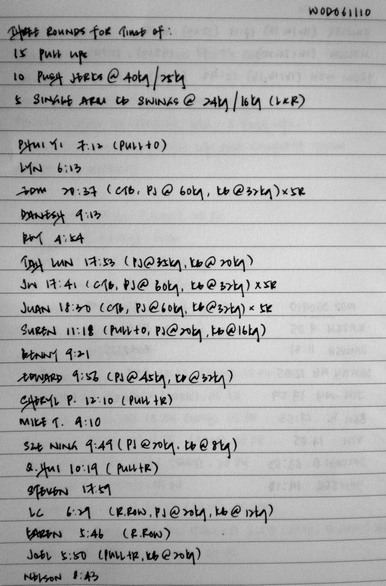 WOD061110
THREE ROUNDS FOR TIME OF:
15 PULL UPS
10 PUSH JERKS @ 40kg/25kg
5 SINGLE ARM KB SWINGS @ 24kg/16kg (L&R)
PHUI YI 7:12 (PULL+O)
LYN 6:13
EDM 20:37 (CTB, PJ @ 60kg, KB@32kg)x5R
DANESH 9:13
4:54
TAH LUN 17:53 (PJ@35kg, KB@20kg)
JW 17:41 (CTB, PJ@ 60kg, KB@32kg)x5R
JUAN 18:30 (CTB, PJ@60kg, KB@32kg)x 5R
SUREN 11:18 (PULL+O, PJ@20kg, KB@16kg)
BENNY 9:21
EDWARD 9:56 (PJ@45kg, KB@32kg)
CHERYL P. 12:10 (PULL+R)
MIKE T. 9:10
SZE NING 9:49 (PJ@20kg, KB@8kg)
S.HUI 10:19 (PULL+R)
STEVEN 17:59
LC 6:29 (R.ROW, PJ@20kg, KB@12kg)
EAREN 5:46 (R.ROW)
JOEL 5:50 (PULL+R, KB@20kg)
NELSON 8:43